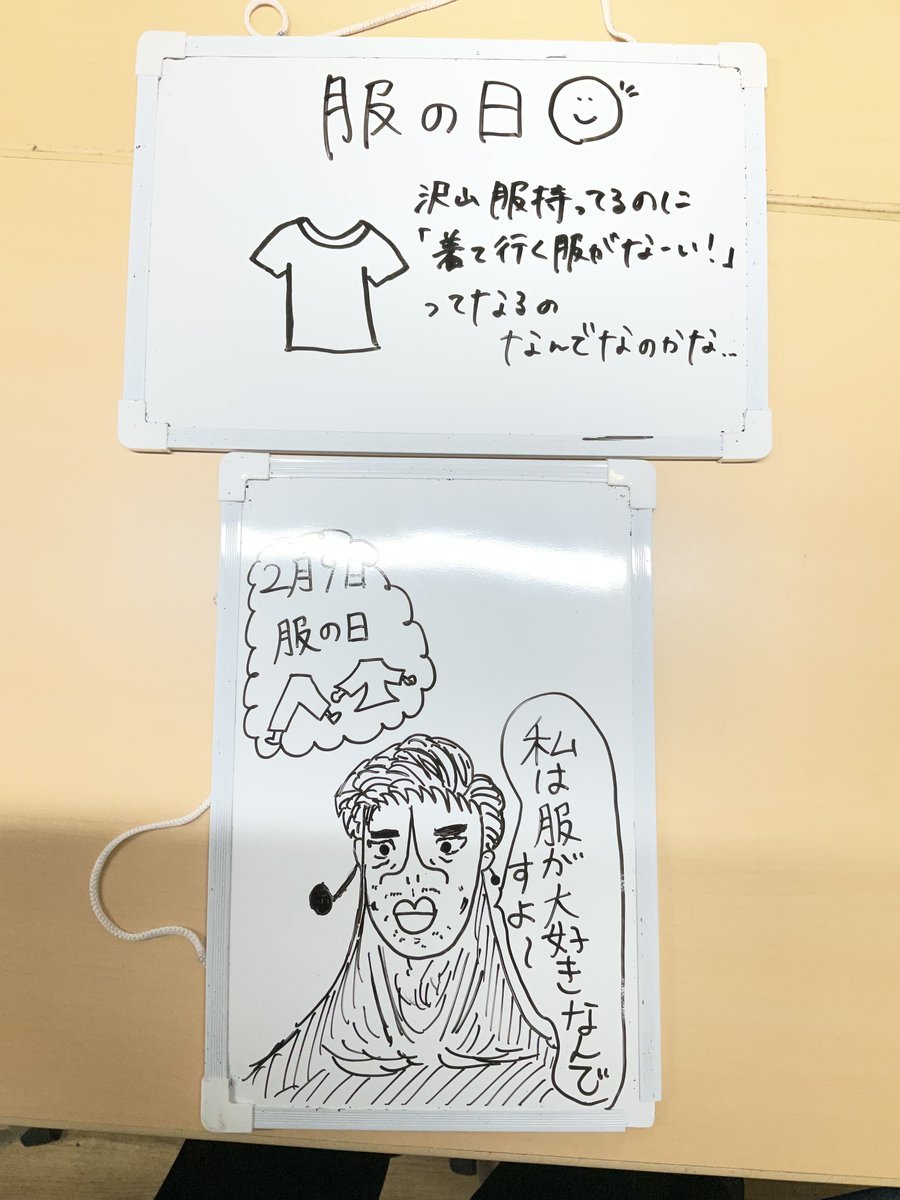 服の日
沢山服持ってるのに
「着て行く服がなーい!」
ってなるの
なんでなのかな..
2月9日
服の日
私は服が大好きなんで
すよ〜